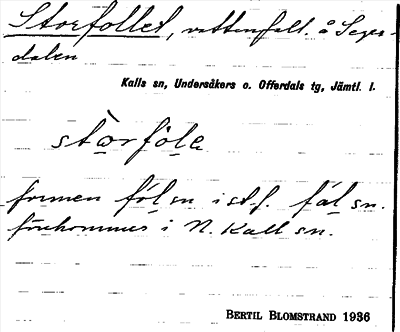 Storfollet, vattenfall. å Seges-
dalen
Kalls sn, Undersåkers o. Offerdals tg, Jämtl. l.
stòrfo̱le
formen fól sn i st. f. fal sn.
förekommer i N. Kall sn.
BERTIL BLOMSTRAND 1936